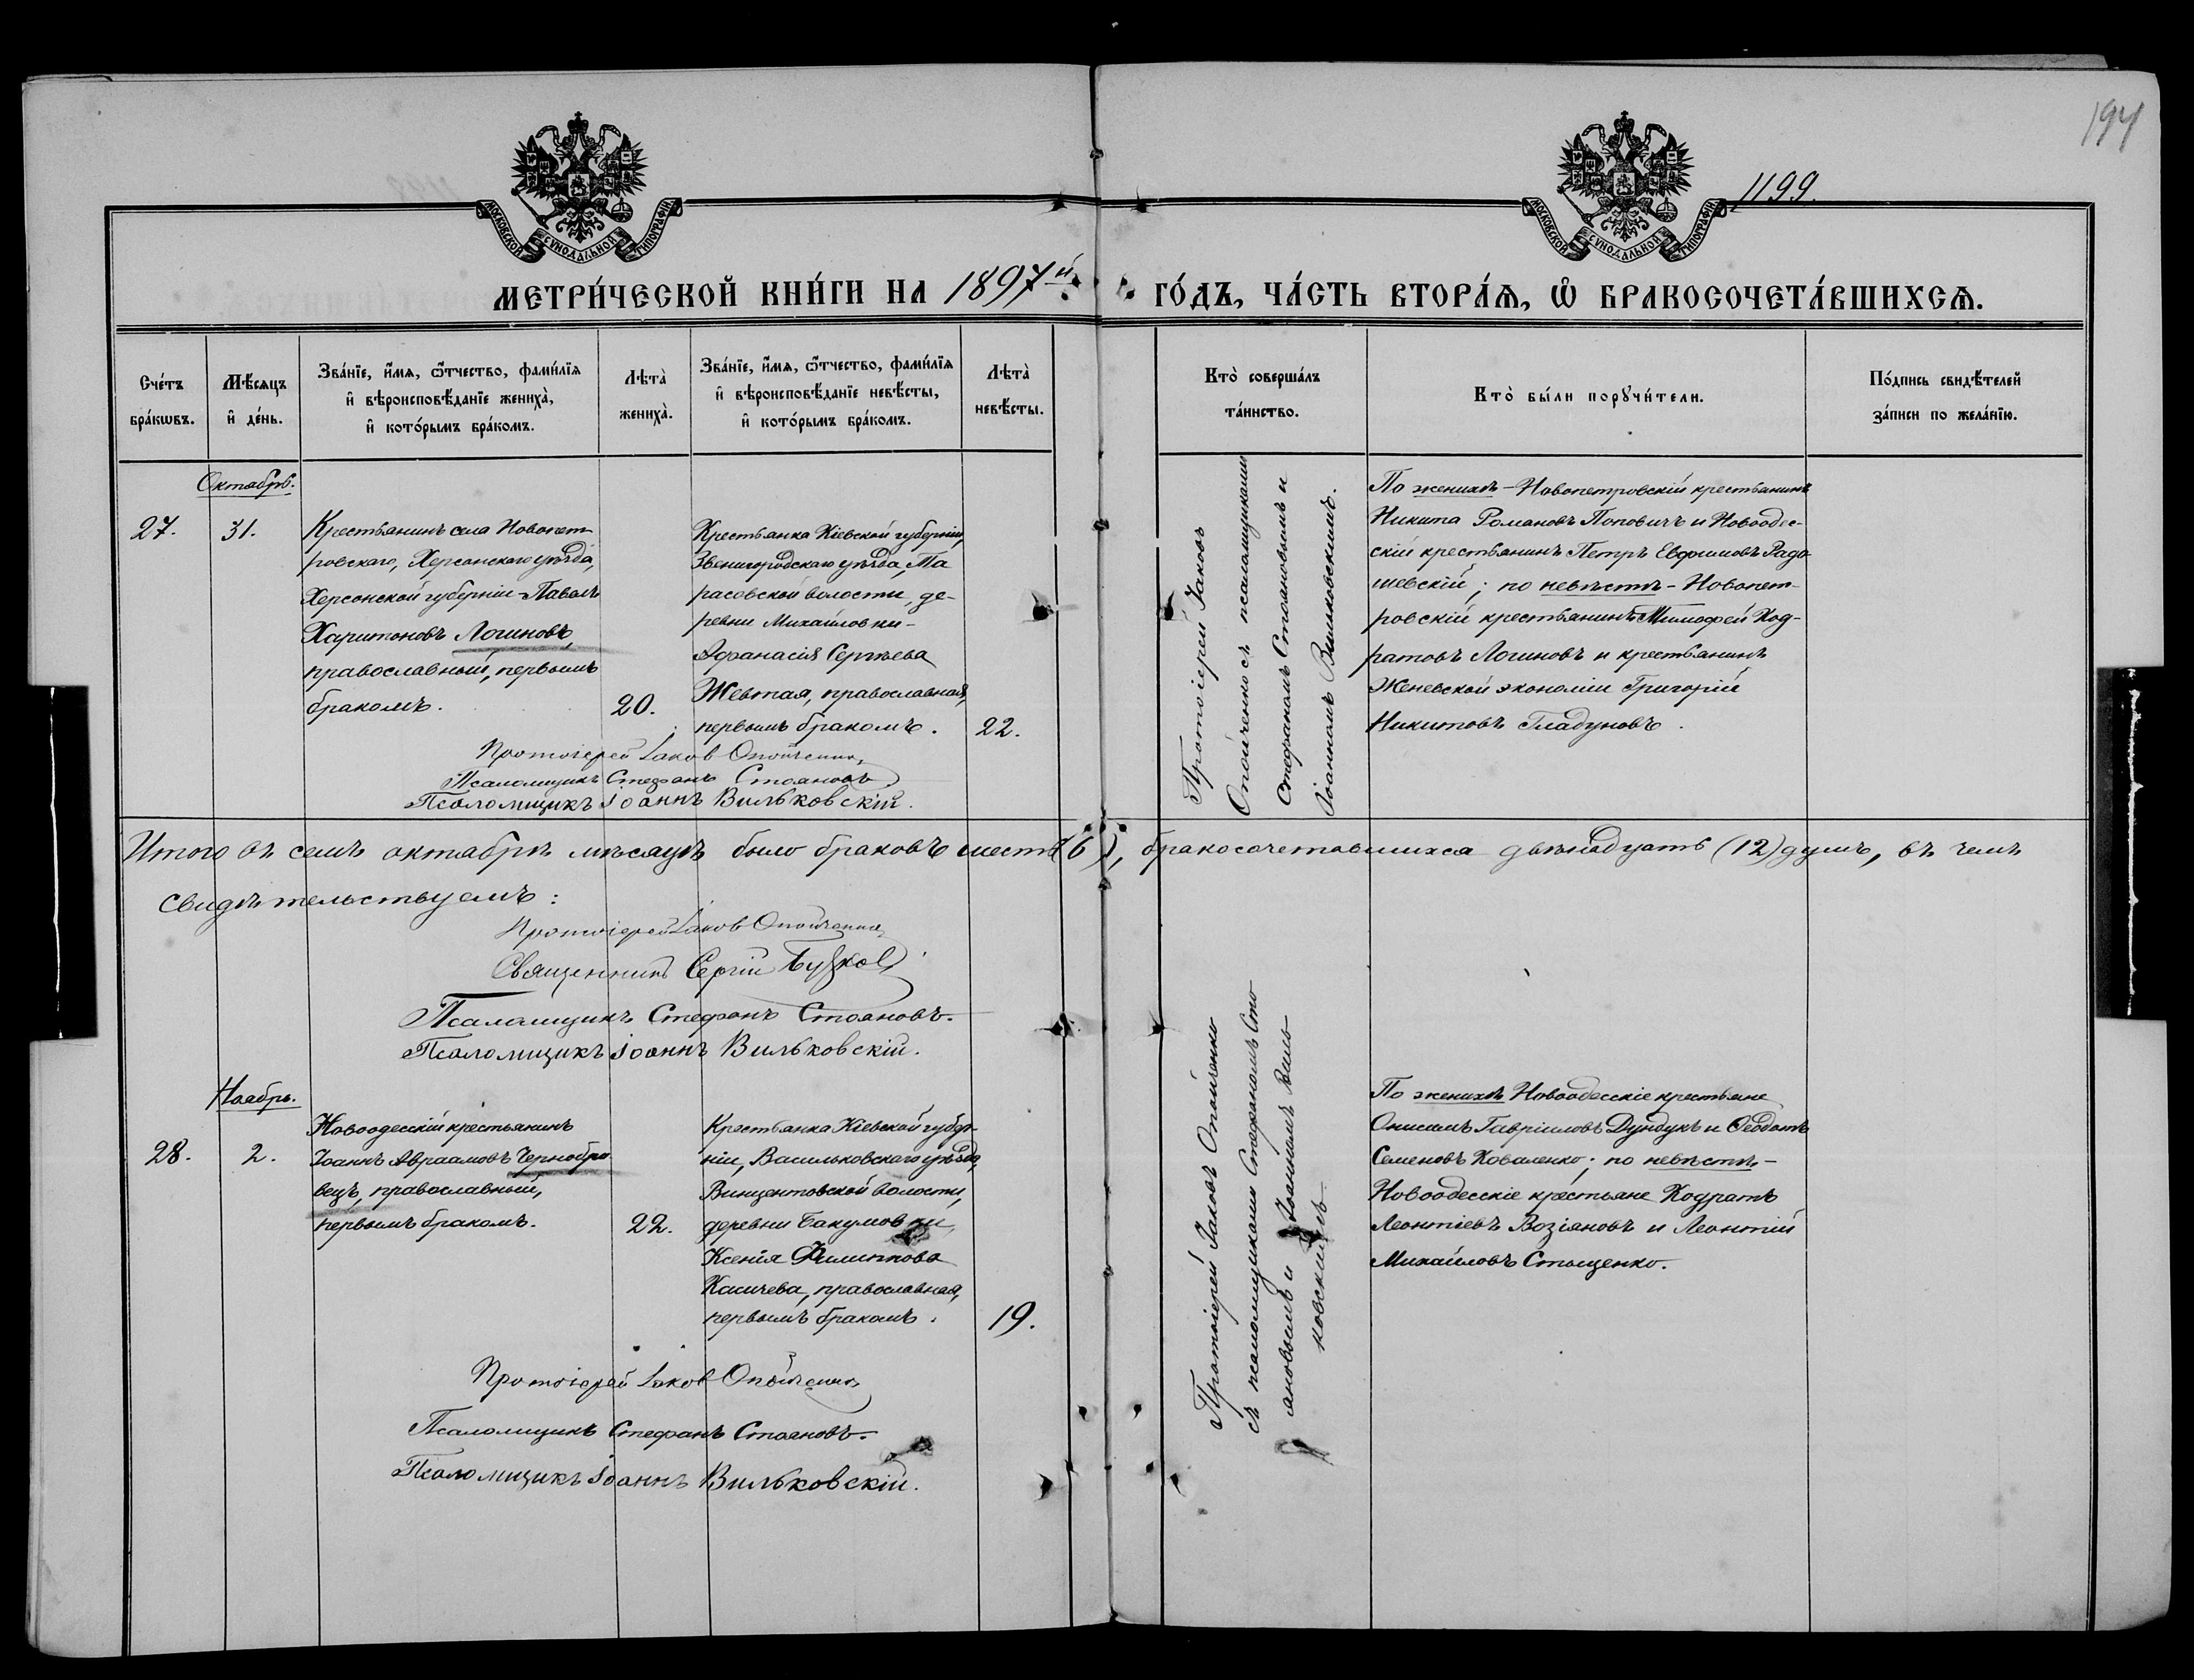 194
1199.
МОСКОВСКОЙ СУНОДАЛЬНОЙ ТИПОГРАФІИ
МОСКОВСКОЙ СУНОДАЛЬНОЙ ТИПОГРАФІИ
МЕТРИ́ЧЕСКОЙ КНИ́ГИ НА 1897й ГО́ДЪ, ЧА́СТЬ ВТОРА́Ѧ, Ѽ БРАКОСОЧЕТА́ВШИХСѦ.
Сче́тъ
бра́кѡвъ.
Мѣ́сяцъ
и҆ де́нь.
Зва́нїе, и҆́мѧ, ѻ҆́тчество, фами́лїѧ
и҆ вѣроисповѣ́данїе жениха̀,
и҆ кото́рымъ бра́комъ.
Лѣта̀
жениха̀.
Зва́нїе, и҆́мѧ, ѻ҆́тчество, фами́лїѧ
и҆ вѣроисповѣ́данїе невѣ́сты,
и҆ кото́рымъ бра́комъ.
Лѣта̀
невѣ́сты.
Кто̀ соверша́лъ
та́инство.
Кто̀ бы́ли порꙋчи́тели.
По́дпись свидѣ́телей
за́писи по жела́нїю.
Октябрь.
27.
31.
Крестьянинъ села Новопет-
ровскаго, Херсонскаго уѣзда,
Херсонской губерніи Павелъ
Харитоновъ Логиновъ,
православный, первымъ
бракомъ.
20.
Крестьянка Кіевской губерніи,
Звенигородскаго уѣзда, Та
расовской волости, де-
ревни Михайловки-
Афанасія Сергѣева
Жевтая, православная,
первымъ бракомъ.
22.
Протоіерей Іаковъ
Опойченко съ псаломщиками
Стефаномъ Стояновымъ и
Іоанномъ Вильковскимъ.
По женихѣ - Новопетровскій крестьянинъ
Никита Романовъ Поповичъ и Новоодес-
скій крестьянинъ Петръ Евфимовъ Радо
шевскій; по невѣстѣ - Новопет-
ровскій крестьянинъ Тимофей Код-
ратовъ Логиновъ и крестьянинъ
Женевской экономіи Григорій
Никитовъ Гладуновъ.
Протоіерей Іаков Опойченко,
Псаломщикъ Стефанъ Стояновъ
Псаломщикъ Іоаннъ Вильковскій.
Итого въ семъ октябрѣ мѣсяцѣ было браковъ шесть (6), бракосочетавшихся двѣнадцать (12) душъ, въ чемъ
свидѣтельствуемъ:
Протоіерей Іаков Опойченко,
Священникъ Сергій
Псаломщикъ Стефанъ Стояновъ.
Псаломщикъ Іоаннъ Вильковскій.
Ноябрь.
28.
2.
Новоодесскій крестьянинъ
Іоаннъ Авраамовъ Чернобри
вецъ, православный,
первымъ бракомъ.
22.
Крестьянка Кіевской губер-
ніи, Васильковскаго уѣзда,
Винцентовской волости,
деревни Бакумовки,
Ксенія Филиппова
Касичева, православная,
первымъ бракомъ.
19.
Протоіерей Іаковъ Опойченко
съ псаломщиками Стефаномъ Сто
яновымъ и Іоанномъ Виль
ковскимъ
По женихѣ Новоодесскіе крестьяне
Онисимъ Гавріиловъ Дундукъ и Ѳеодотъ
Семеновъ Коваленко; по невѣстѣ -
Новоодесскіе крестьяне Кодратъ
Леонтіевъ Возіяновъ и Леонтій
Михайловъ Стыценко.
Протоіерей Іаков Опойченко
Псаломщикъ Стефанъ Стояновъ.
Псаломщикъ Іоаннъ Вильковскій.